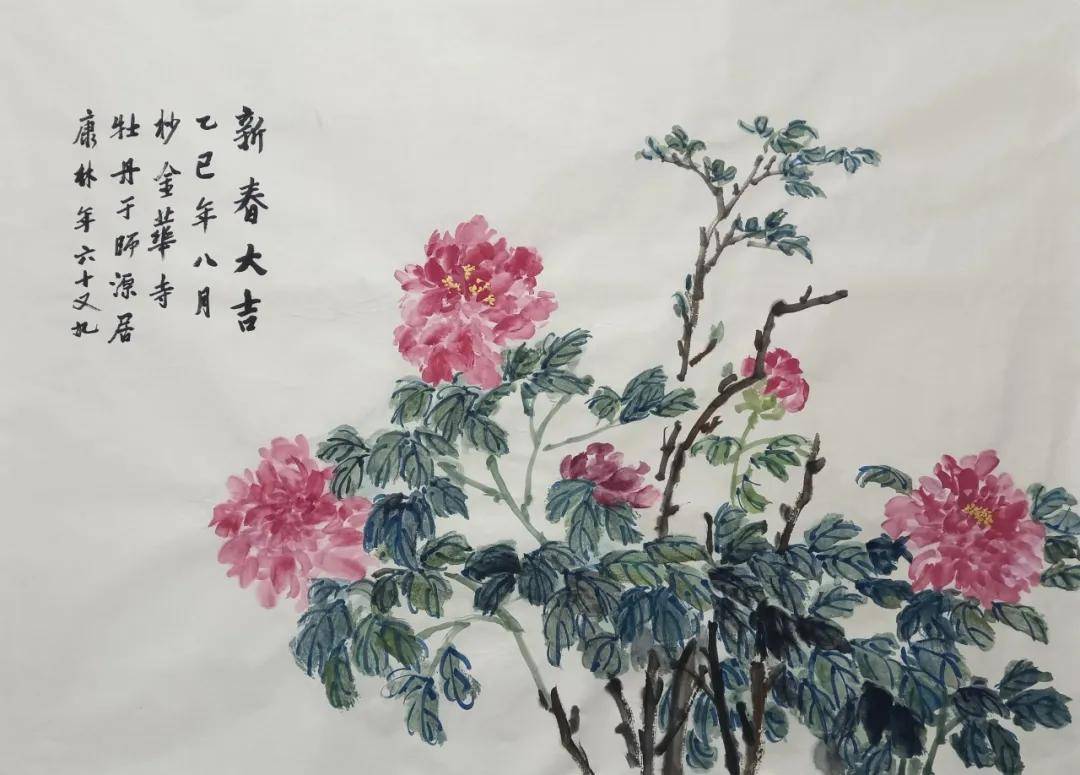 新春大吉
乙巳年八月
杪金華寺
牡丹于师源居
康林年六十又九